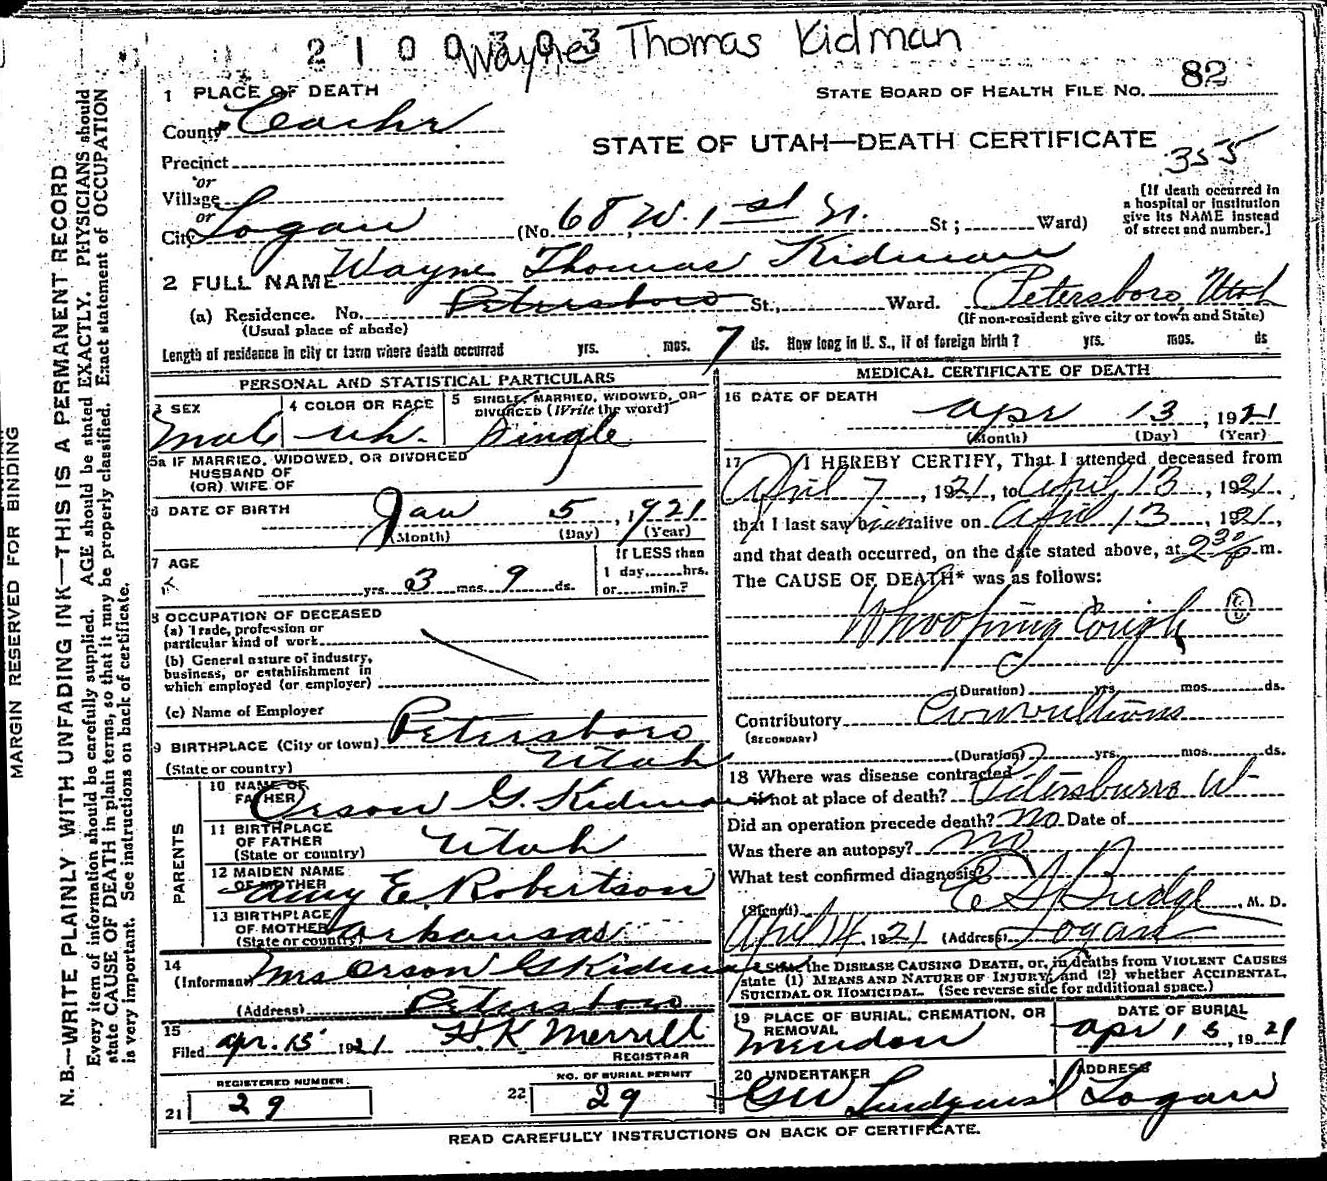 2100303
Wayne Thomas Kidman
82
1 PLACE OF DEATH
STATE BOARD OF HEALTH FILE NO.
County Cache
STATE OF UTAH—DEATH CERTIFICATE
355
Precinct
or
Village
or
City Logan (No. 68 W. 1st N. St; Ward)
[If death occurred in
a hospital or institution
give its NAME instead
of street and number.]
2 FULL NAME Wayne Thomas Kidman
(a) Residence. No. Petersboro St., Ward. Petersboro, Utah
(Usual place of abode) (If non-resident give city or town and State)
Length of residence in city or town where death occurred yrs. mos. 7 ds. How long in U. S., if of foreign birth? yrs. mos. ds
PERSONAL AND STATISTICAL PARTICULARS
3 SEX Male
4 COLOR OR RACE Wh.
5 SINGLE, MARRIED, WIDOWED, OR
DIVORCED (Write the word)
Single
5a IF MARRIED, WIDOWED, OR DIVORCED
HUSBAND OF
(OR) WIFE OF
6 DATE OF BIRTH Jan 5, 1921
(Month) (Day) (Year)
7 AGE
yrs 3 mos 9 ds.
If LESS than
1 day, hrs.
or min.?
8 OCCUPATION OF DECEASED
(a) Trade, profession or
particular kind of work
(b) General nature of industry,
business, or establishment in
which employed (or employer)
(c) Name of Employer
9 BIRTHPLACE (City or town) Petersboro
(State or country) Utah
PARENTS
10 NAME OF
FATHER Orson G. Kidman
11 BIRTHPLACE
OF FATHER
(State or country) Utah
12 MAIDEN NAME
OF MOTHER Amy E. Robertson
13 BIRTHPLACE
OF MOTHER
(State or country) Arkansas
14
(Informant) Mrs Orson G Kidman
(Address) Petersboro
15
Filed Apr. 15 1921 H. K. Merrill
REGISTRAR
REGISTERED NUMBER
21 29
NO. OF BURIAL PERMIT
22 29
MEDICAL CERTIFICATE OF DEATH
16 DATE OF DEATH
Apr 13, 1921
(Month) (Day) (Year)
17 I HEREBY CERTIFY, That I attended deceased from
April 7, 1921, to April 13, 1921.
that I last saw him alive on April 13, 1921,
and that death occurred, on the date stated above, at 2 30 p m.
The CAUSE OF DEATH* was as follows:
Whooping Cough
(Duration) yrs. mos. ds.
Contributory Convultions
(SECONDARY)
(Duration) yrs. mos. ds.
18 Where was disease contracted
if not at place of death? Petersburro Ut
Did an operation precede death? no Date of
Was there an autopsy? no
What test confirmed diagnosis?
(Signed) E S Budge, M. D.
April 14 1921 (Address) Logan
*State the DISEASE CAUSING DEATH, or, in deaths from VIOLENT CAUSES
state (1) MEANS AND NATURE OF INJURY, and (2) whether ACCIDENTAL,
SUICIDAL OR HOMICIDAL. (See reverse side for additional space.)
19 PLACE OF BURIAL, CREMATION, OR
REMOVAL
Mendon
DATE OF BURIAL
Apr 15, 1921
20 UNDERTAKER
GW Lindquist
ADDRESS
Logan
READ CAREFULLY INSTRUCTIONS ON BACK OF CERTIFICATE.
MARGIN RESERVED FOR BINDING
N. B.—WRITE PLAINLY WITH UNFADING INK—THIS IS A PERMANENT RECORD
Every item of information should be carefully supplied. AGE should be stated EXACTLY. PHYSICIANS should
state CAUSE OF DEATH in plain terms, so that it may be properly classified. Exact statement of OCCUPATION
is very important. See instructions on back of certificate.